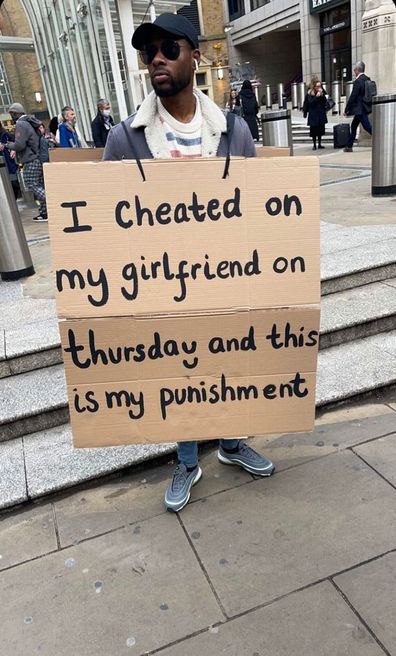 I Cheated on
my girlfriend on
thursday and this
is my punishment